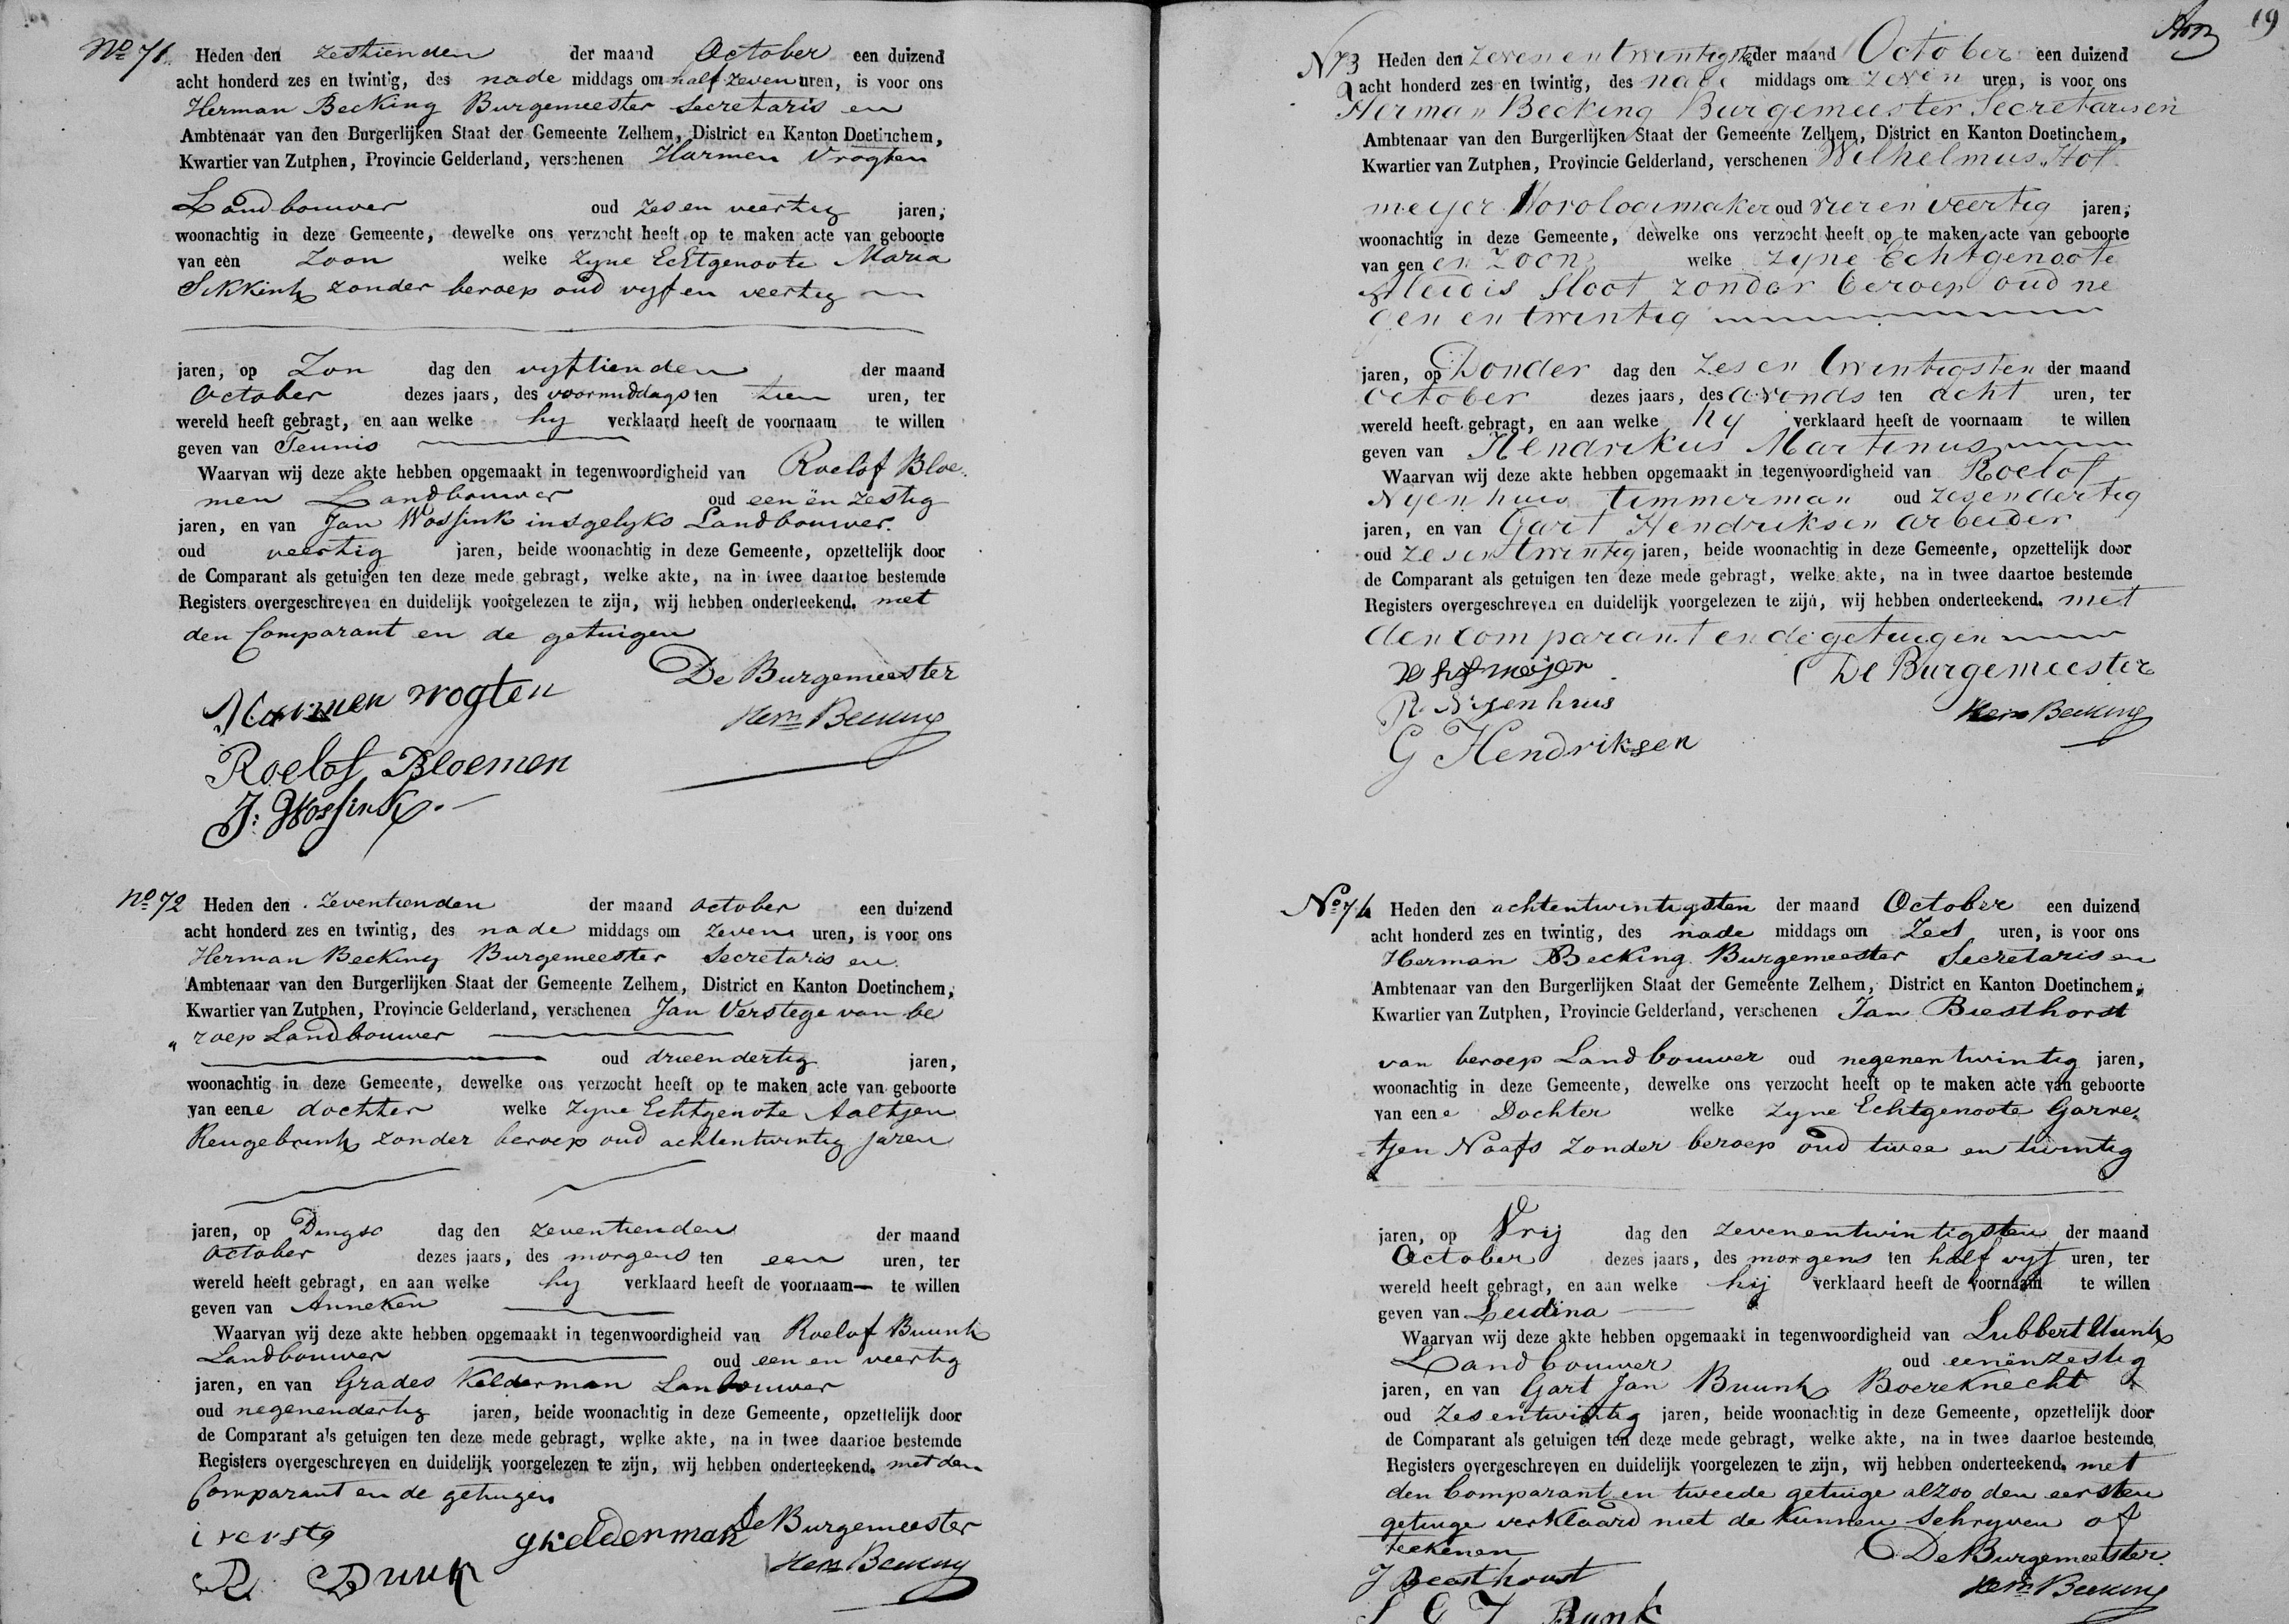 No 71. Heden den zestienden der maand October een duizend
acht honderd zes en twintig, des nade middags om half zeven uren, is voor ons
Herman Becking Burgemeester Secretaris en
Ambtenaar van den Burgerlijken Staat der Gemeente Zelhem, District en Kanton Doetinchem,
Kwartier van Zutphen, Provincie Gelderland, verschenen Harmen Vrogten
Landbouwer oud zes en veertig jaren,
woonachtig in deze Gemeente, dewelke ons verzocht heeft op te maken acte van geboorte
van een Zoon welke zyne Echtgenoote Maria
Sikkink zonder beroep oud vyf en veertig
jaren, op Zon dag den vyftienden der maand
October dezes jaars, des voormiddags ten tien uren, ter
wereld heeft gebragt, en aan welke hy verklaard heeft de voornaam te willen
geven van Teunis
Waarvan wij deze akte hebben opgemaakt in tegenwoordigheid van Roelof Bloe-
men Landbouwer oud een ën zestig
jaren, en van Jan Wossink insgelyks Landbouwer.
oud veertig jaren, beide woonachtig in deze Gemeente, opzettelijk door
de Comparant als getuigen ten deze mede gebragt, welke akte, na in twee daartoe bestemde
Registers overgeschreven en duidelijk voorgelezen te zijn, wij hebben onderteekend. met
den Comparant en de getuigen
De Burgemeester
Harmen vrogten
Herm Becking
Roelof Bloemen
J: Wossink.
No 72 Heden den zeventienden der maand October een duizend
acht honderd zes en twintig, des nade middags om zeven uren, is voor ons
Herman Becking Burgemeester Secretaris en
Ambtenaar van den Burgerlijken Staat der Gemeente Zelhem, District en Kanton Doetinchem,
Kwartier van Zutphen, Provincie Gelderland, verschenen Jan Verstege van be
" roep Landbouwer
oud drieendertig jaren,
woonachtig in deze Gemeente, dewelke ons verzocht heeft op te maken acte van geboorte
van eene dochter welke zyne Echtgenote Aaltjen
Rengebrink zonder beroep oud achtentwintig jaren
jaren, op Dings dag den zeventienden der maand
October dezes jaars, des morgens ten een uren, ter
wereld heeft gebragt, en aan welke hy verklaard heeft de voornaam— te willen
geven van Anneken
Waarvan wij deze akte hebben opgemaakt in tegenwoordigheid van Roelof Buunk
Landbouwer oud een en veertig
jaren, en van Grades Kelderman Lanbouwer
oud negenendertig jaren, beide woonachtig in deze Gemeente, opzettelijk door
de Comparant als getuigen ten deze mede gebragt, welke akte, na in twee daartoe bestemde
Registers overgeschreven en duidelijk voorgelezen te zijn, wij hebben onderteekend. met den
Comparant en de getuigen
De Burgemeester
gkelderman
Herm Becking
19
N 73 Heden den zevenentwintigste der maand October een duizend
acht honderd zes en twintig, des nade middags om zeven uren, is voor ons
Herman Becking Burgemeester Secretaris en
Ambtenaar van den Burgerlijken Staat der Gemeente Zelhem, District en Kanton Doetinchem,
Kwartier van Zutphen, Provincie Gelderland, verschenen Wilhelmus Hof
meyer Horologimaker oud vier en veertig jaren,
woonachtig in deze Gemeente, dewelke ons verzocht heeft op te maken acte van geboorte
van een en zoon welke zyne Echtgenoote
Aleidis Sloot zonder beroep oud ne
gen en twintig
jaren, op Donder dag den zes en twintigsten der maand
October dezes jaars, des avonds ten acht uren, ter
wereld heeft gebragt, en aan welke hy verklaard heeft de voornaam te willen
geven van Hendrikus Martinus
Waarvan wij deze akte hebben opgemaakt in tegenwoordigheid van Roelof
Nyenhuis timmerman oud zesendertig
jaren, en van Gart Hendriksen arbeider
oud zesentwintig jaren, beide woonachtig in deze Gemeente, opzettelijk door
de Comparant als getuigen ten deze mede gebragt, welke akte, na in twee daartoe bestemde
Registers overgeschreven en duidelijk voorgelezen te zijn, wij hebben onderteekend. met
den comparant en de getuigen
De Burgemeester
hofmeijer
R Nijenhuis
Herm Becking
G Hendriksen
No 74 Heden den achtentwintigsten der maand October een duizend
acht honderd zes en twintig, des nade middags om Zes uren, is voor ons
Herman Becking Burgemeester Secretaris en
Ambtenaar van den Burgerlijken Staat der Gemeente Zelhem, District en Kanton Doetinchem,
Kwartier van Zutphen, Provincie Gelderland, verschenen Jan Biesthorst
van beroep Landbouwer oud negenentwintig jaren,
woonachtig in deze Gemeente, dewelke ons verzocht heeft op te maken acte van geboorte
van eene Dochter welke zyne Echtgenoote Garre-
tjen Naafs zonder beroep oud twee en twintig
jaren, op Vrij dag den zevenentwintigsten der maand
October dezes jaars, des morgens ten half vyf uren, ter
wereld heeft gebragt, en aan welke hij verklaard heeft de voornaam te willen
geven van Leidina
Waarvan wij deze akte hebben opgemaakt in tegenwoordigheid van Lubbert Uunk
Landbouwer oud eenënzestig
jaren, en van Gart Jan Buunk Boereknecht
oud zesentwintig jaren, beide woonachtig in deze Gemeente, opzettelijk door
de Comparant als getuigen ten deze mede gebragt, welke akte, na in twee daartoe bestemde
Registers overgeschreven en duidelijk voorgelezen te zijn, wij hebben onderteekend. met
den Comparant en tweede getuige alzoo den eersten
getuige verklaard niet de kunnen schryven of
teekenen
De Burgemeester
J Beesthorst
Herm Becking
G J Bunk